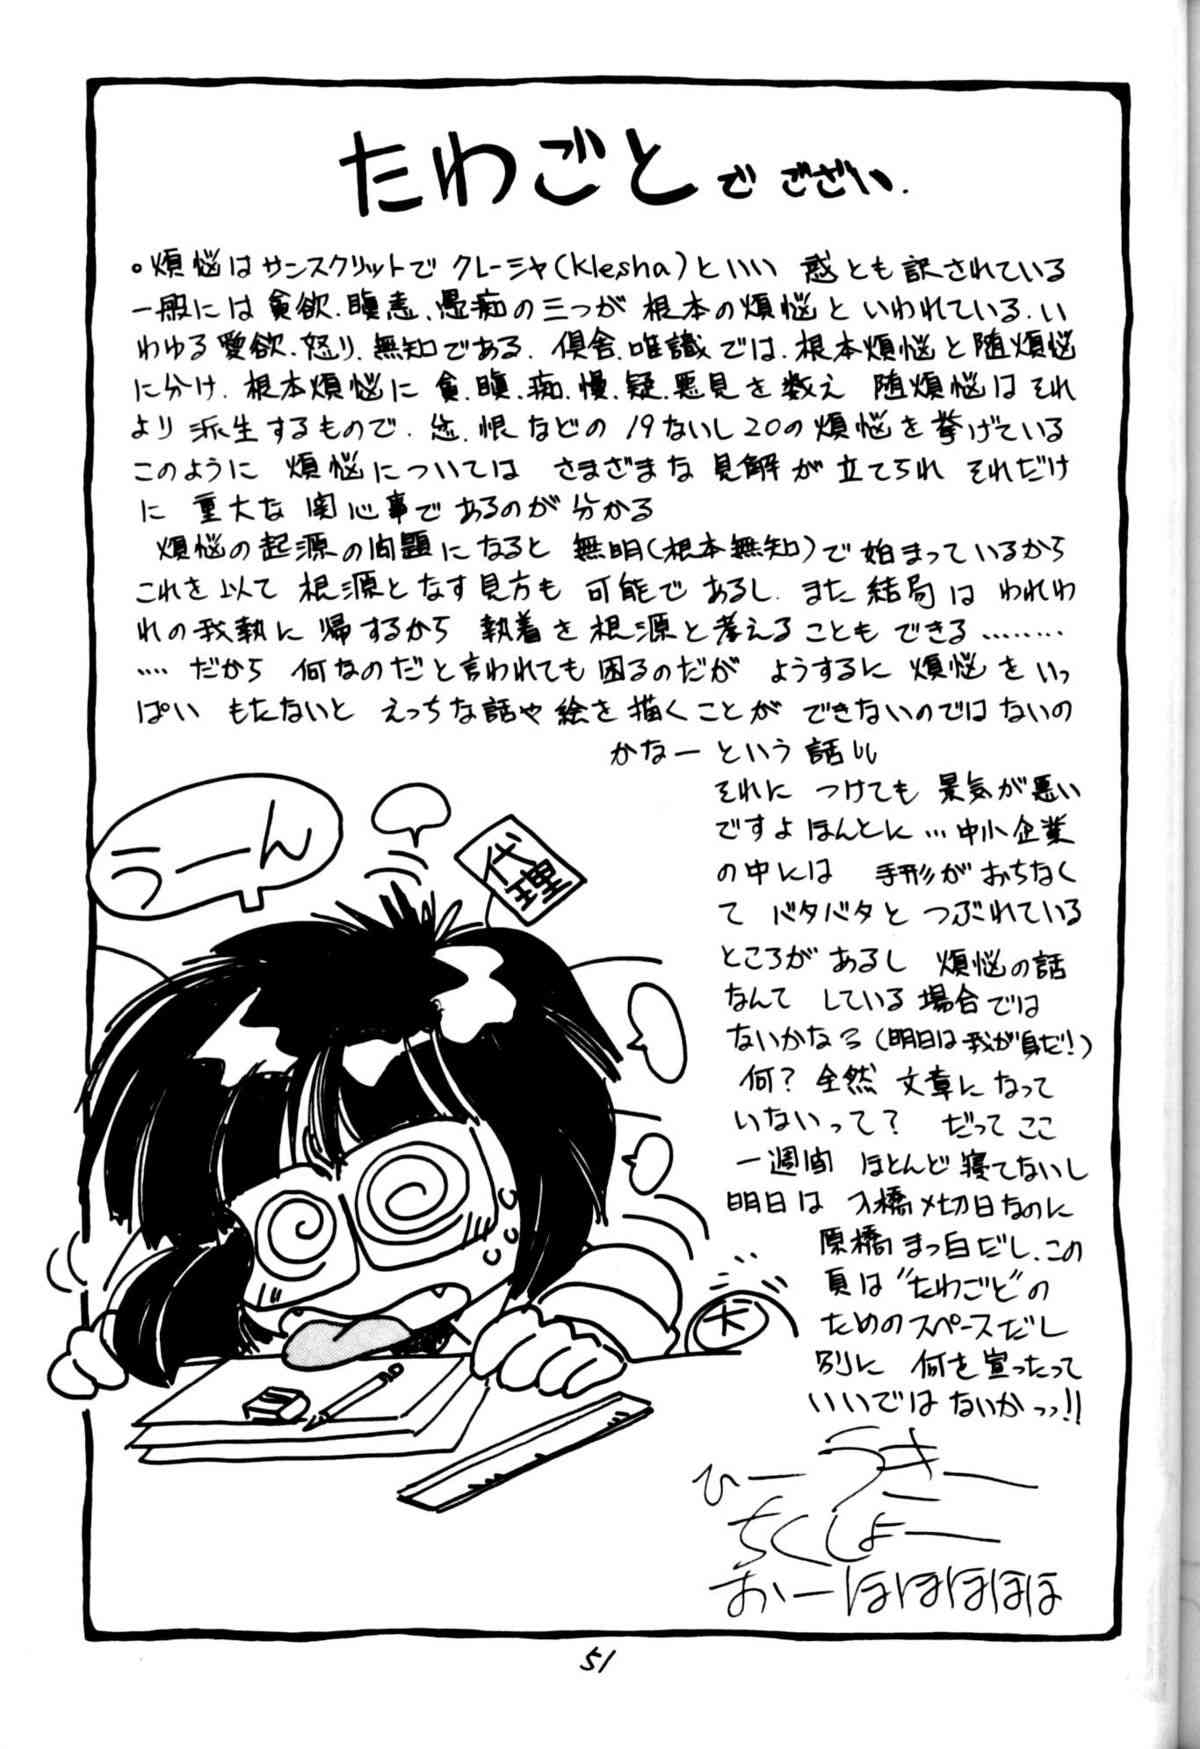 たわごとでござい.
。煩悩はサンスクリットでクレーシャ(klesha)といい 惑とも訳されている
一般には貪欲.瞋恚、愚痴の三つが根本の煩悩といわれている.い
わゆる愛欲.怒り.無知である.倶舎.唯識では.根本煩悩と随煩悩
に分け.根本煩悩に 貪.瞋.痴.慢.疑.悪見を数え 随煩悩はそれ
より派生するもので.忿.恨などの19ないし20の煩悩を挙げている
このように 煩悩については さまざまな見解が立てられ それだけ
に 重大な関心事であるのが分かる
煩悩の起源の問題になると 無明(根本無知)で始まっているから
これを以て 根源となす見方も 可能であるし.また結局は われわ
れの我執に帰するから 執着を根源と考えることもできる………
…‥だから 何なのだと言われても困るのだが ようするに 煩悩をいっ
ぱい もたないと えっちな話や絵を描くことが できないのではないの
かなーという話
それに つけても 景気が悪い
ですよほんとに…中小企業
の中には 手形がおちなく
て バタバタと つぶれている
ところが あるし 煩悩の話
なんて している場合では
ないかなろ(明日は我が身だ!)
何? 全然 文章になって
いないって? だってここ
一週間 ほとんど寝てないし
明日は 入橋〆切日なのに
原橋まっ白だし.この
頁は"たわごと"の
ためのスペースだし
別に 何を宣ったって
いいではないかっっ!!
ひーうきー
ちくしょー
おーほほほほほ
うーん
代理
大
51